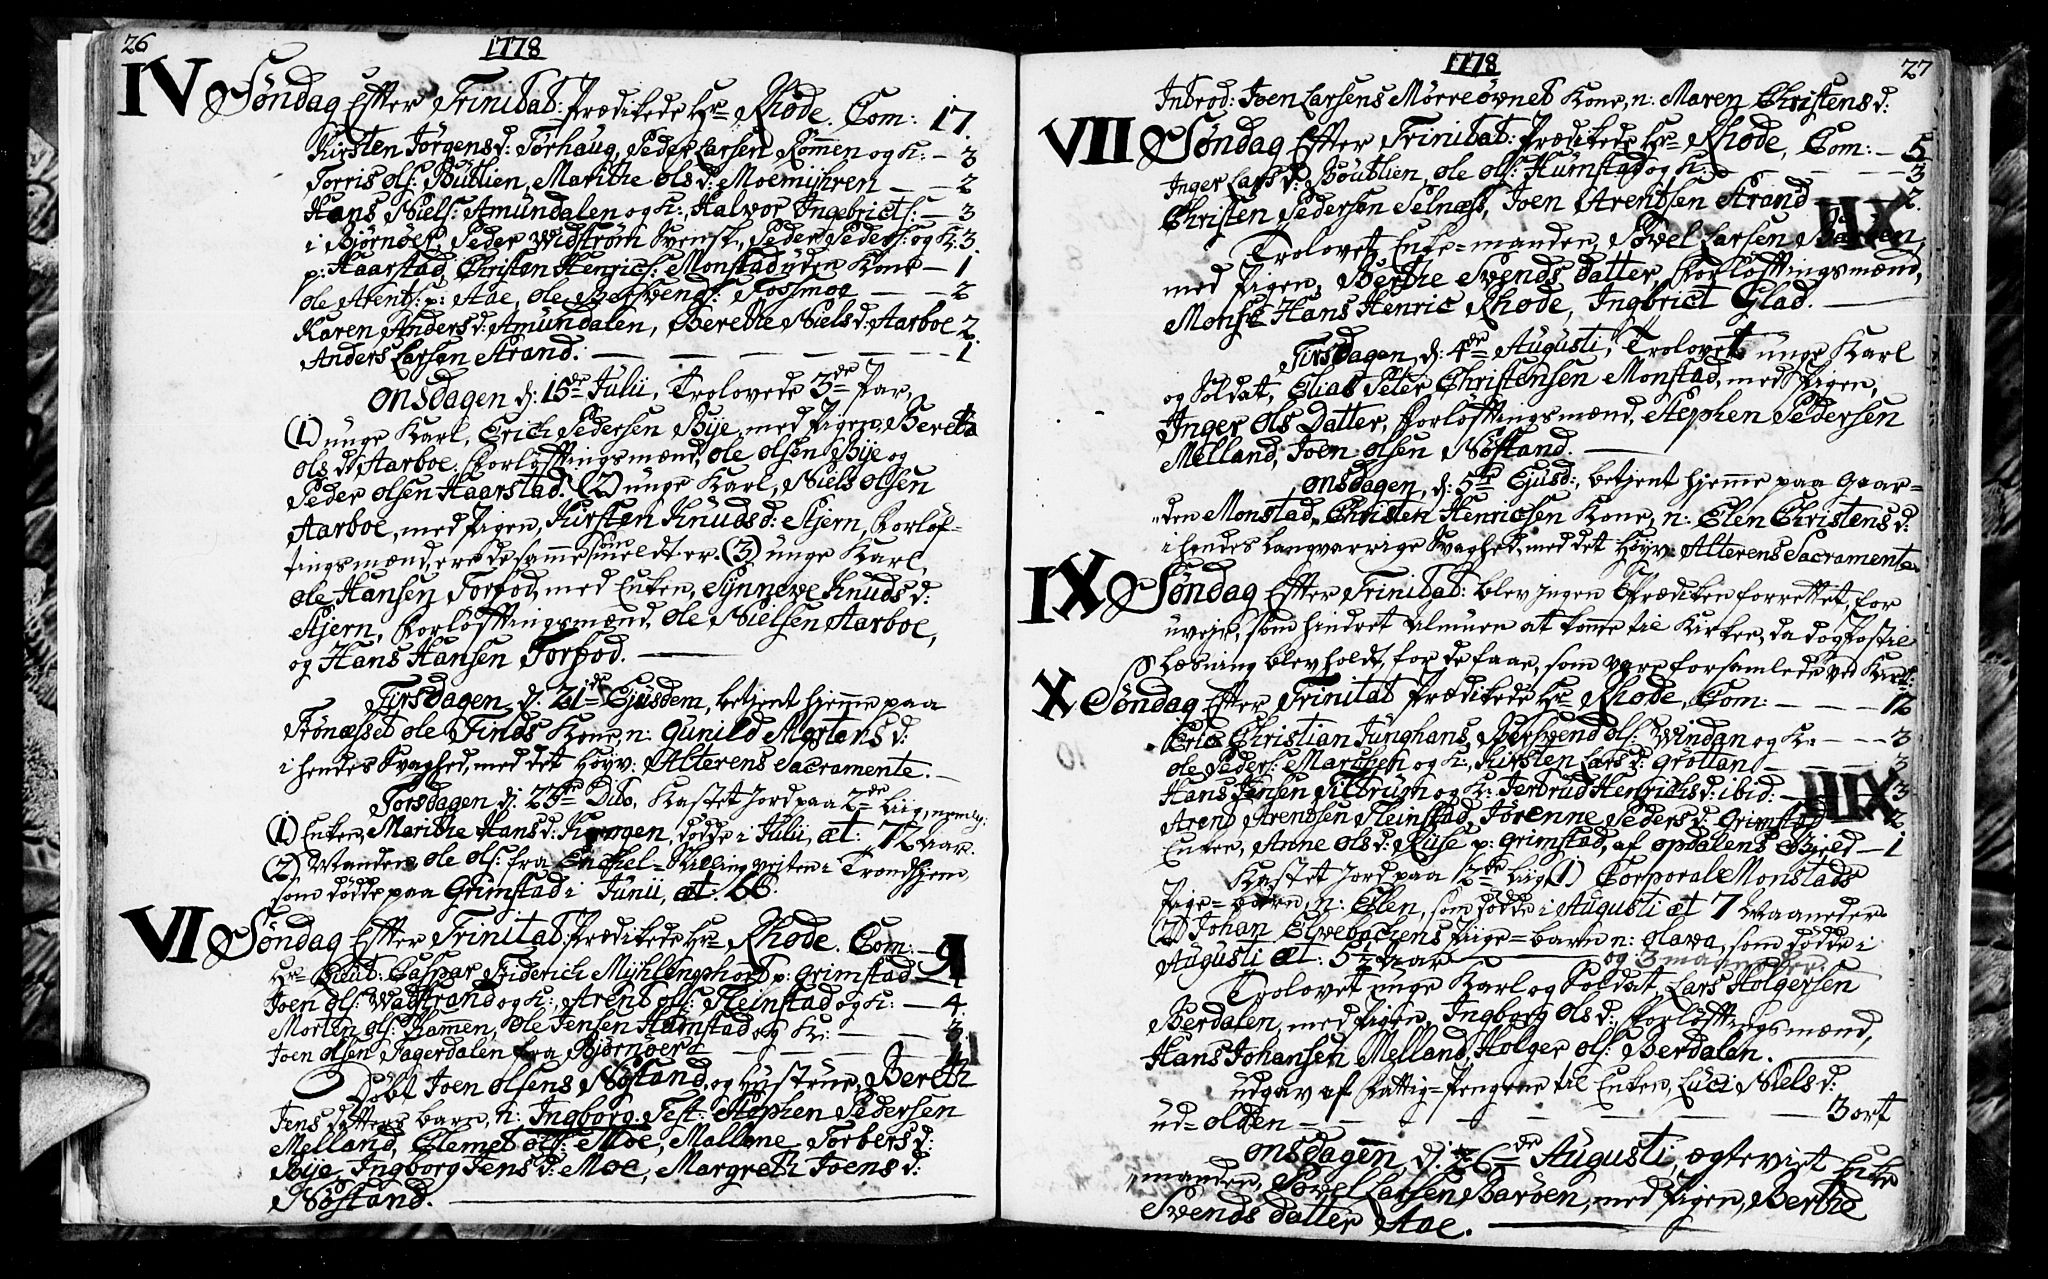 26
1778
IV Søndag Efter Trinitat: Prædikede Hr Rhode. Com: 17.
Kirsten Jørgensd: Torhaug, Peder Larsen Rømen og K: — 3
Torris Ols: Butlien, Marithe Olsd: Moemyhren — — 2
Hans Niels: Amundalen og K:, Halvor Ingebricts: — 3
i Bjørnøer, Peder Widstrøm Svensk, Peder Peders: og K: 3.
p: Haarstad, Christen Henrics: Monstad uden Kone — 1
Ole Arents: p: Aae, Ole Bersvends: Fossmoe — — 2
Karen Andersd: Amundalen, Berethe Nielsd: Aarboe 2
Anders Larsen Strand. — — — — — — 1
Onsdagen d: 15de Julii, Trolovede 3de Par,
(1) unge Karl, Erich Pedersen Bye, med Pigen, Bereth
Olsd: Aarboe. Forløftingsmænd, Ole Olsen Bye og
Peder Olsen Haarstad. (2) unge Karl, Niels Olsen
Aarboe, med Pigen, Kirsten Knudsd: Stjern, Forløf-
tingsmænd, ere de samme som meldt er. (3) unge Karl,
Ole Hansen Torfod, med Enken, Synneve Knudsd:
Stjern, Forløftingsmænd, Ole Nielsen Aarboe,
og Hans Hansen Torfod. —
Tirsdagen, d. 21de Ejusdem, betjent hjemme paa
Trønæsset Ole Finds Kone, n: Gunild Mortensd:
i hendes Svaghed, med det Høyv: Alterens Sacramente. —
Torsdagen d: 23de Dito, Kastet Jord paa 2de Liig, nemlig:
(1) Enken, Marithe Hansd: , døde i Julii, æt: 72 Aar.
(2) Manden Ole Ols: fra Enchel-Skillingveiten i Trondhjem,
som døde paa Grimstad i Junii, æt: 66.
VI Søndag Efter Trinitat: Prædikede Hr Rhode. Com: — 9
Hr Lieut: Caspar Friderich Mühlenphort p: Grimstad — 1
Joen Ols: Wadstrand og K:, Arent Ols: Steinstad og K: — 4
Morten Ols: Hammen, Ole Jensen Humstad og K: — — 3
Joen Olsen Fagerdalen fra Bjørnøer — — — — 1
Døbt Joen Olsens Nøstand, og Hustrue, Bereth
Jens datters barn, n: Ingborg. Test: Stephen Pedersen
Melland, Clemet Ols: Moe, Mallene Torbersd:
Bye, Ingborg Jensd: Moe, Margreth Joensd:
Nøstand. —
27
1778
Introd: Joen Larsens Mørreøvnet Kone, n: Maren Christensd:
VII Søndag Efter Trinitat: Prædikede Hr Rhode, Com: — 5
Inger Larsd: Boutlien, Ole Ols: Humstad og K: — — — 3
Christen Pedersen Selnæss, Joen Arentsen Strand — 2.
Trolovet Enke-manden, Povel Larsen Barøen,
med Pigen, Berthe Svends datter, Forløftingsmænd,
Monsr Hans Henric Rhode, Ingbrict Glad. —
Tirsdagen, d: 4de Augusti, Trolovet unge Karl
og Soldat, Elias Peter Christensen Monstad, med Pigen,
Inger Ols Datter, Forløftingsmænd, Stephen Pedersen
Melland, Joen Olsen Nøstand. —
Onsdagen, d: 5te Ejusd:, betjent hjemme paa Gaar-
den Monstad, Christen Henricsen Kone, n: Elen Christensd:
i hendes langvarrige Svaghed, med det Høyv: Alterens Sacramente.
IX Søndag Efter Trinitat: blev ingen Prædiken forrettet, for
uveir, som hindret Almuen at komme til Kirken, da dog Postil
Læsning blev holdt, for de faae, som vare forsamlede ved Kirk:
X Søndag Efter Trinitat Prædikede Hr Rhode, Com: — — — 12
Eric Christian Junghans, Bersvend Ols: Windan og K: — — 3
Ole Peders: Marchen og K:, Kirsten Larsd: Grøttan — — 3
Hans Jensen Titbrugn og K: Jertrud Henrichsd: ibid: — 3
Arent Arentsen Steinstad, Jørenne Pedersd: Grimstad 2
Enken, Anne Olsd: Riise p: Grimstad, af Opdalens Gield — 1
Kastet Jord paa 2de Liig (1) Corporal Monstads
Pige-barn, n: Elen, som døde i Augusti æt 7 Maaneder.
(2) Johan Elvebackens Piige-barn n: Olava, som døde i
Augusti æt: 5½ Aar — og 3 maaneder.
Trolovet unge Karl og Soldat, Lars Holgersen
Berdalen, med Pigen, Ingborg Olsd: Forløftingsmænd,
Hans Johansen Melland, Holger Ols: Berdalen. —
udgav af Fattig-Pengene til Enken, Luci Nielsd:
ud-Olden — — — — — — 3 ort
Onsdagen d: 26de Augusti, ægteviet Enke
manden, Povel Larsen Barøen, med Pigen, Berthe
Svends datter Aae. —